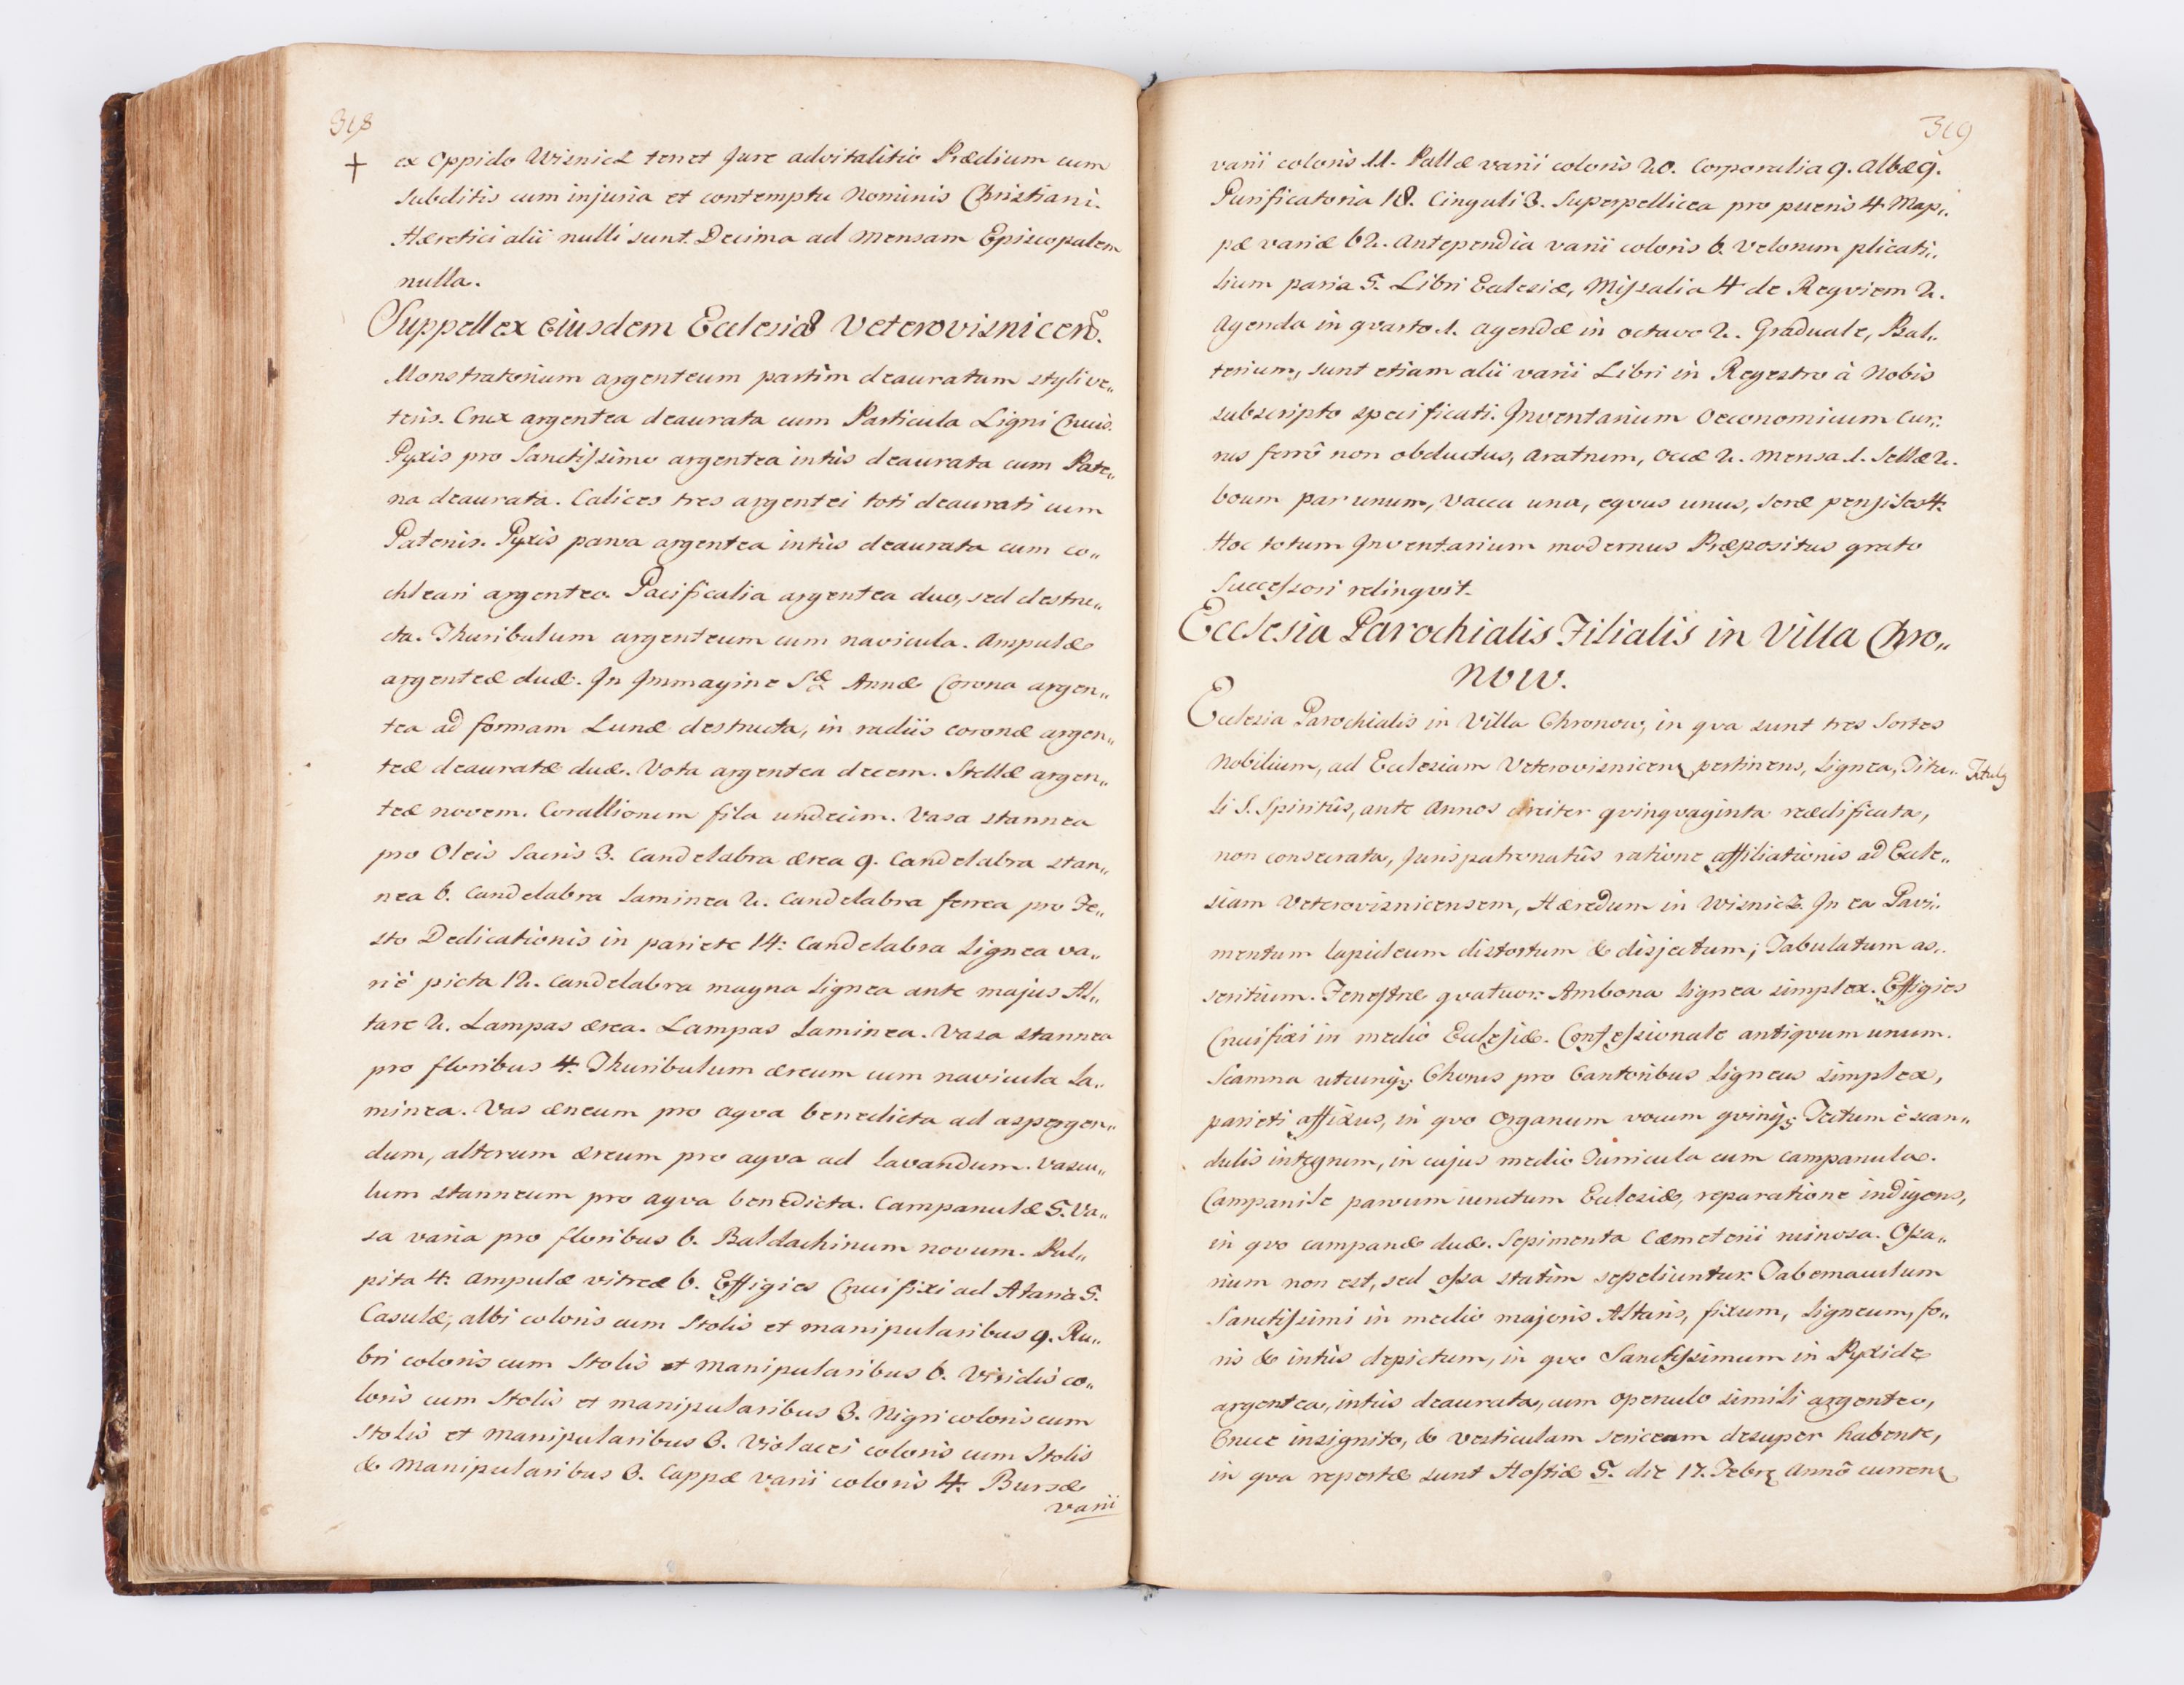 318
+ ex Oppido Wisnicz tenet Jure advitalitio Prædium cum
subditis cum injuria et contemptu Nominis Christiani.
Hæretici alii nulli sunt. Decima ad mensam Episcopalem
nulla.
Suppellex eiusdem Ecclesiæ Veterovisnicen̄.
Monstratorium argenteum partim deauratum styli ve„
teris. Crux argentea deaurata cum Particula Ligni Crucis.
Pyxis pro Sanctissimo argentea intùs deaurata cum Pate„
na deaurata. Calices tres argentei toti deaurati cum
Patenis. Pyxis parva argentea intùs deaurata cum co„
chleari argenteo. Pacificalia argentea duo, sed destru„
cta. Thuribulum argenteum cum navicula. Ampulæ
argenteæ duæ. In Immagine Sæ Annæ Corona argen„
tea ad formam Lunæ destructa, in radiis coronæ argen„
teæ deauratæ duæ. Vota argentea decem. Stellæ argen„
teæ novem. Corallionum fila undecim. Vasa stannea
pro Oleis Sacris 3. Candelabra ærea 9. Candelabra stan„
nea 6. Candelabra laminea 2. Candelabra ferrea pro Fe„
sto Dedicationis in pariete 14: Candelabra lignea va„
riè picta 12. Candelabra magna lignea ante majus Al„
tare 2. Lampas ærea. Lampas laminea. Vasa stannea
pro floribus 4. Thuribulum æreum cum navicula la„
minea. Vas æneum pro aqva benedicta ad aspergen„
dum, alterum æreum pro aqva ad lavandum. Vascu„
lum stanneum pro aqva benedicta. Campanulæ 5. Va„
sa varia pro floribus 6. Baldachinum novum. Pul„
pita 4: Ampulæ vitreæ 6. Effigies Crucifixi ad Altaria 5.
Casulæ, albi coloris cum Stolis et manipularibus 9. Ru„
bri coloris cum Stolis et manipularibus 6. Viridis co„
loris cum Stolis et manipularibus 3. Nigri coloris cum
Stolis et manipularibus 3. Violacei coloris cum Stolis
& Manipularibus 3. Cappæ varii coloris 4. Bursæ
varii
319
varii coloris 11. Pallæ varii coloris 20. Corporalia 9. Albæ 9.
Purificatoria 18. Cinguli 3. Superpellicea pro pueris 4 Map„
pæ variæ 62. Antependia varii coloris 6. Velorum plicati„
lium paria 5. Libri Ecclesiæ, Missalia 4 de Reqviem 2.
Agenda in qvarto 1. Agendæ in octavo 2. Graduale, Psal„
terium, sunt etiam alii varii Libri in Regestro à Nobis
subscripto specificati. Inventarium Oeconomicum Cur„
rus ferrô non obductus, Aratrum, Occæ 2. Mensa 1. Sellæ 2.
boum par unum, Vacca una, eqvus unus, Seræ pensiles 4.
Hoc totum Inventarium modernus Præpositus grato
Successori relinqvit.
Ecclesia Parochialis Filialis in Villa Chro„
now.
Ecclesia Parochialis in Villa Chronow, in qva sunt tres Sortes
Nobilium, ad Ecclesiam Veterovisnicens pertinens, lignea, Titu„
Tituls
li S. Spiritûs, ante Annos circiter qvinqvaginta reædificata,
non consecrata, Jurispatronatûs ratione affiliationis ad Eccle„
siam Veterovisnicensem, Hæredum in Wisnicz. In ea Pavi„
mentum lapideum distortum & disjectum; Tabulatum as„
seritium. Fenestræ qvatuor. Ambona lignea simplex. Effigies
Crucifixi in medio Ecclesiæ. Confessionale antiqvum unum.
Scamna utrinq; Chorus pro Cantoribus ligneus simplex,
parieti affixus, in qvo Organum vocum qvinq; Tectum è scan„
dulis integrum, in cujus medio Turricula cum campanula.
Campanile parvum iunctum Ecclesiæ, reparatione indigens,
in qvo campanæ duæ. Sepimenta Cæmeterii ruinosa. Ossa„
rium non est, sed ossa statim sepeliuntur. Tabernaculum
Sanctissimi in medio majoris Altaris, fixum, ligneum, fo„
ris & intùs depictum, in qvo Sanctissimum in Pyxide
argentea, intùs deaurata, cum operculo simili argenteo,
Cruce insignito, & vesticulam sericeam desuper habente,
in qva repertæ sunt Hostiæ 5. die 17. Febr. Annô curren